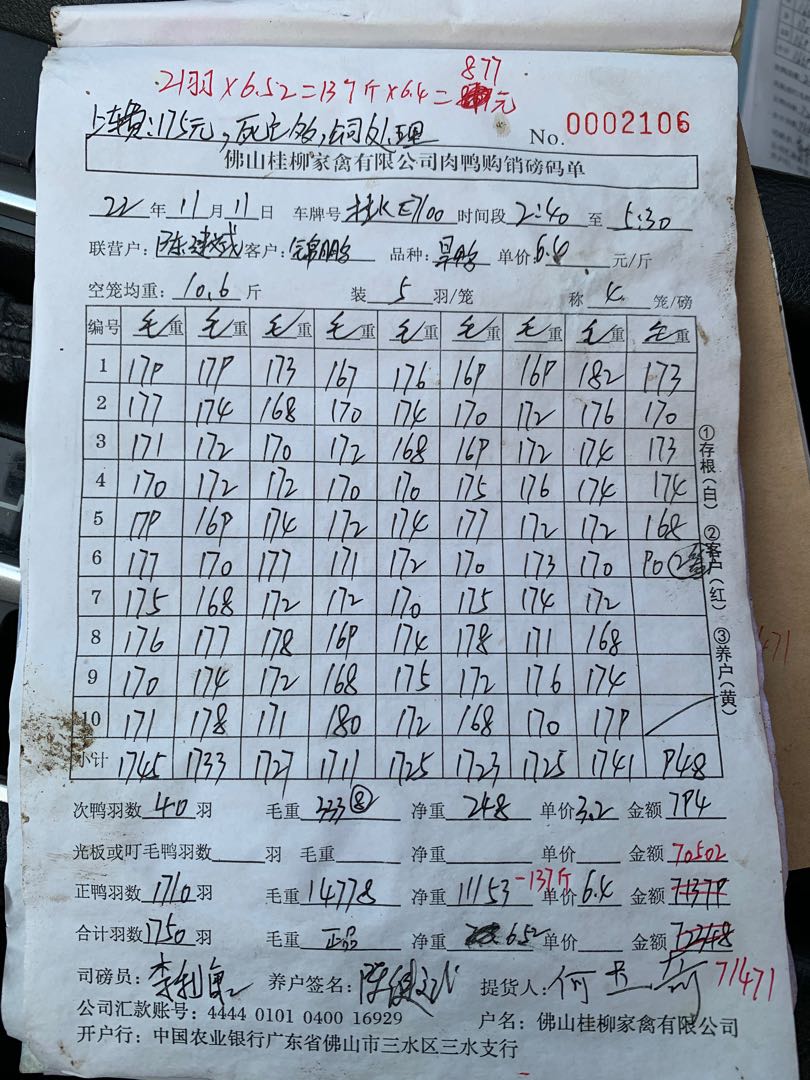 21羽×6.52=137斤×6.4=877元
上车费:175元,死亡
No. 0002106
佛山桂柳家禽有限公司肉鸭购销磅码单
22 年 11 月 11 日 车牌号 桂KE7100 时间段 2:40 至 5:30
联营户: 陈 客户: 锦鹏 品种: 单价: 6.4 元/斤
空笼均重: 10.6 斤 装 5 羽/笼 称 4 笼/磅
编号 毛重 毛重 毛重 毛重 毛重 毛重 毛重 毛重 毛重
1 179 179 173 167 176 169 169 182 173
2 177 174 168 170 174 170 172 176 170
3 171 172 170 172 168 169 172 174 173
4 170 172 172 170 170 175 176 174 174
5 179 169 174 172 174 177 172 172 168
6 177 170 177 171 172 170 173 170 90
7 175 168 172 172 170 175 174 172
8 176 177 178 169 174 178 171 168
9 170 174 172 168 175 172 176 174
10 171 178 171 180 172 168 170 179
小计 1745 1733 1727 1711 1725 1723 1725 1741 948
①存根(白) ②客户(红) ③养户(黄)
次鸭羽数 40 羽 毛重 333⑧ 净重 248 单价 3.2 金额 794
光板或叮毛鸭羽数 羽 毛重 净重 单价 金额 70502
正鸭羽数 1710 羽 毛重 14778 净重 11153 -137斤 单价 6.4 金额 71379
合计羽数 1750 羽 毛重 正品 净重 6.52 单价 金额 72348
司磅员: 李利 养户签名: 陈 提货人: 何 71471
公司汇款账号: 4444 0101 0400 16929 户名: 佛山桂柳家禽有限公司
开户行: 中国农业银行广东省佛山市三水区三水支行